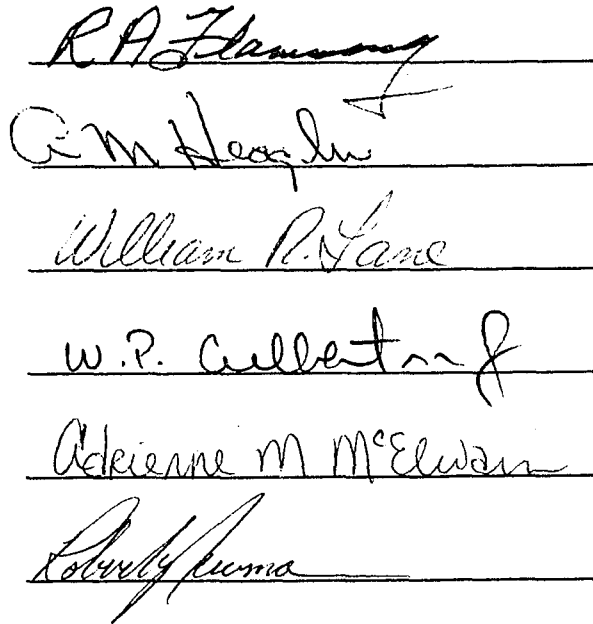 R A Flammang
A M Heaglin
William R. Lane
W.P. Culbertson Jr
Adrienne M McElwain
Robert Newma